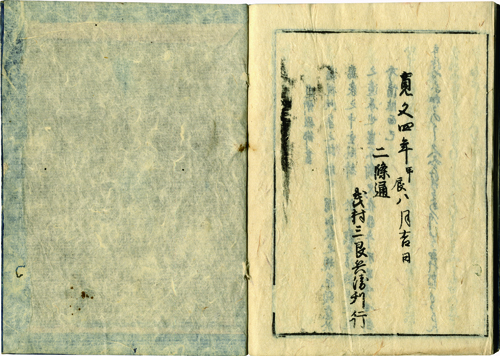 寛文四年甲辰八月吉日
二條通
武村三良兵衛刊行